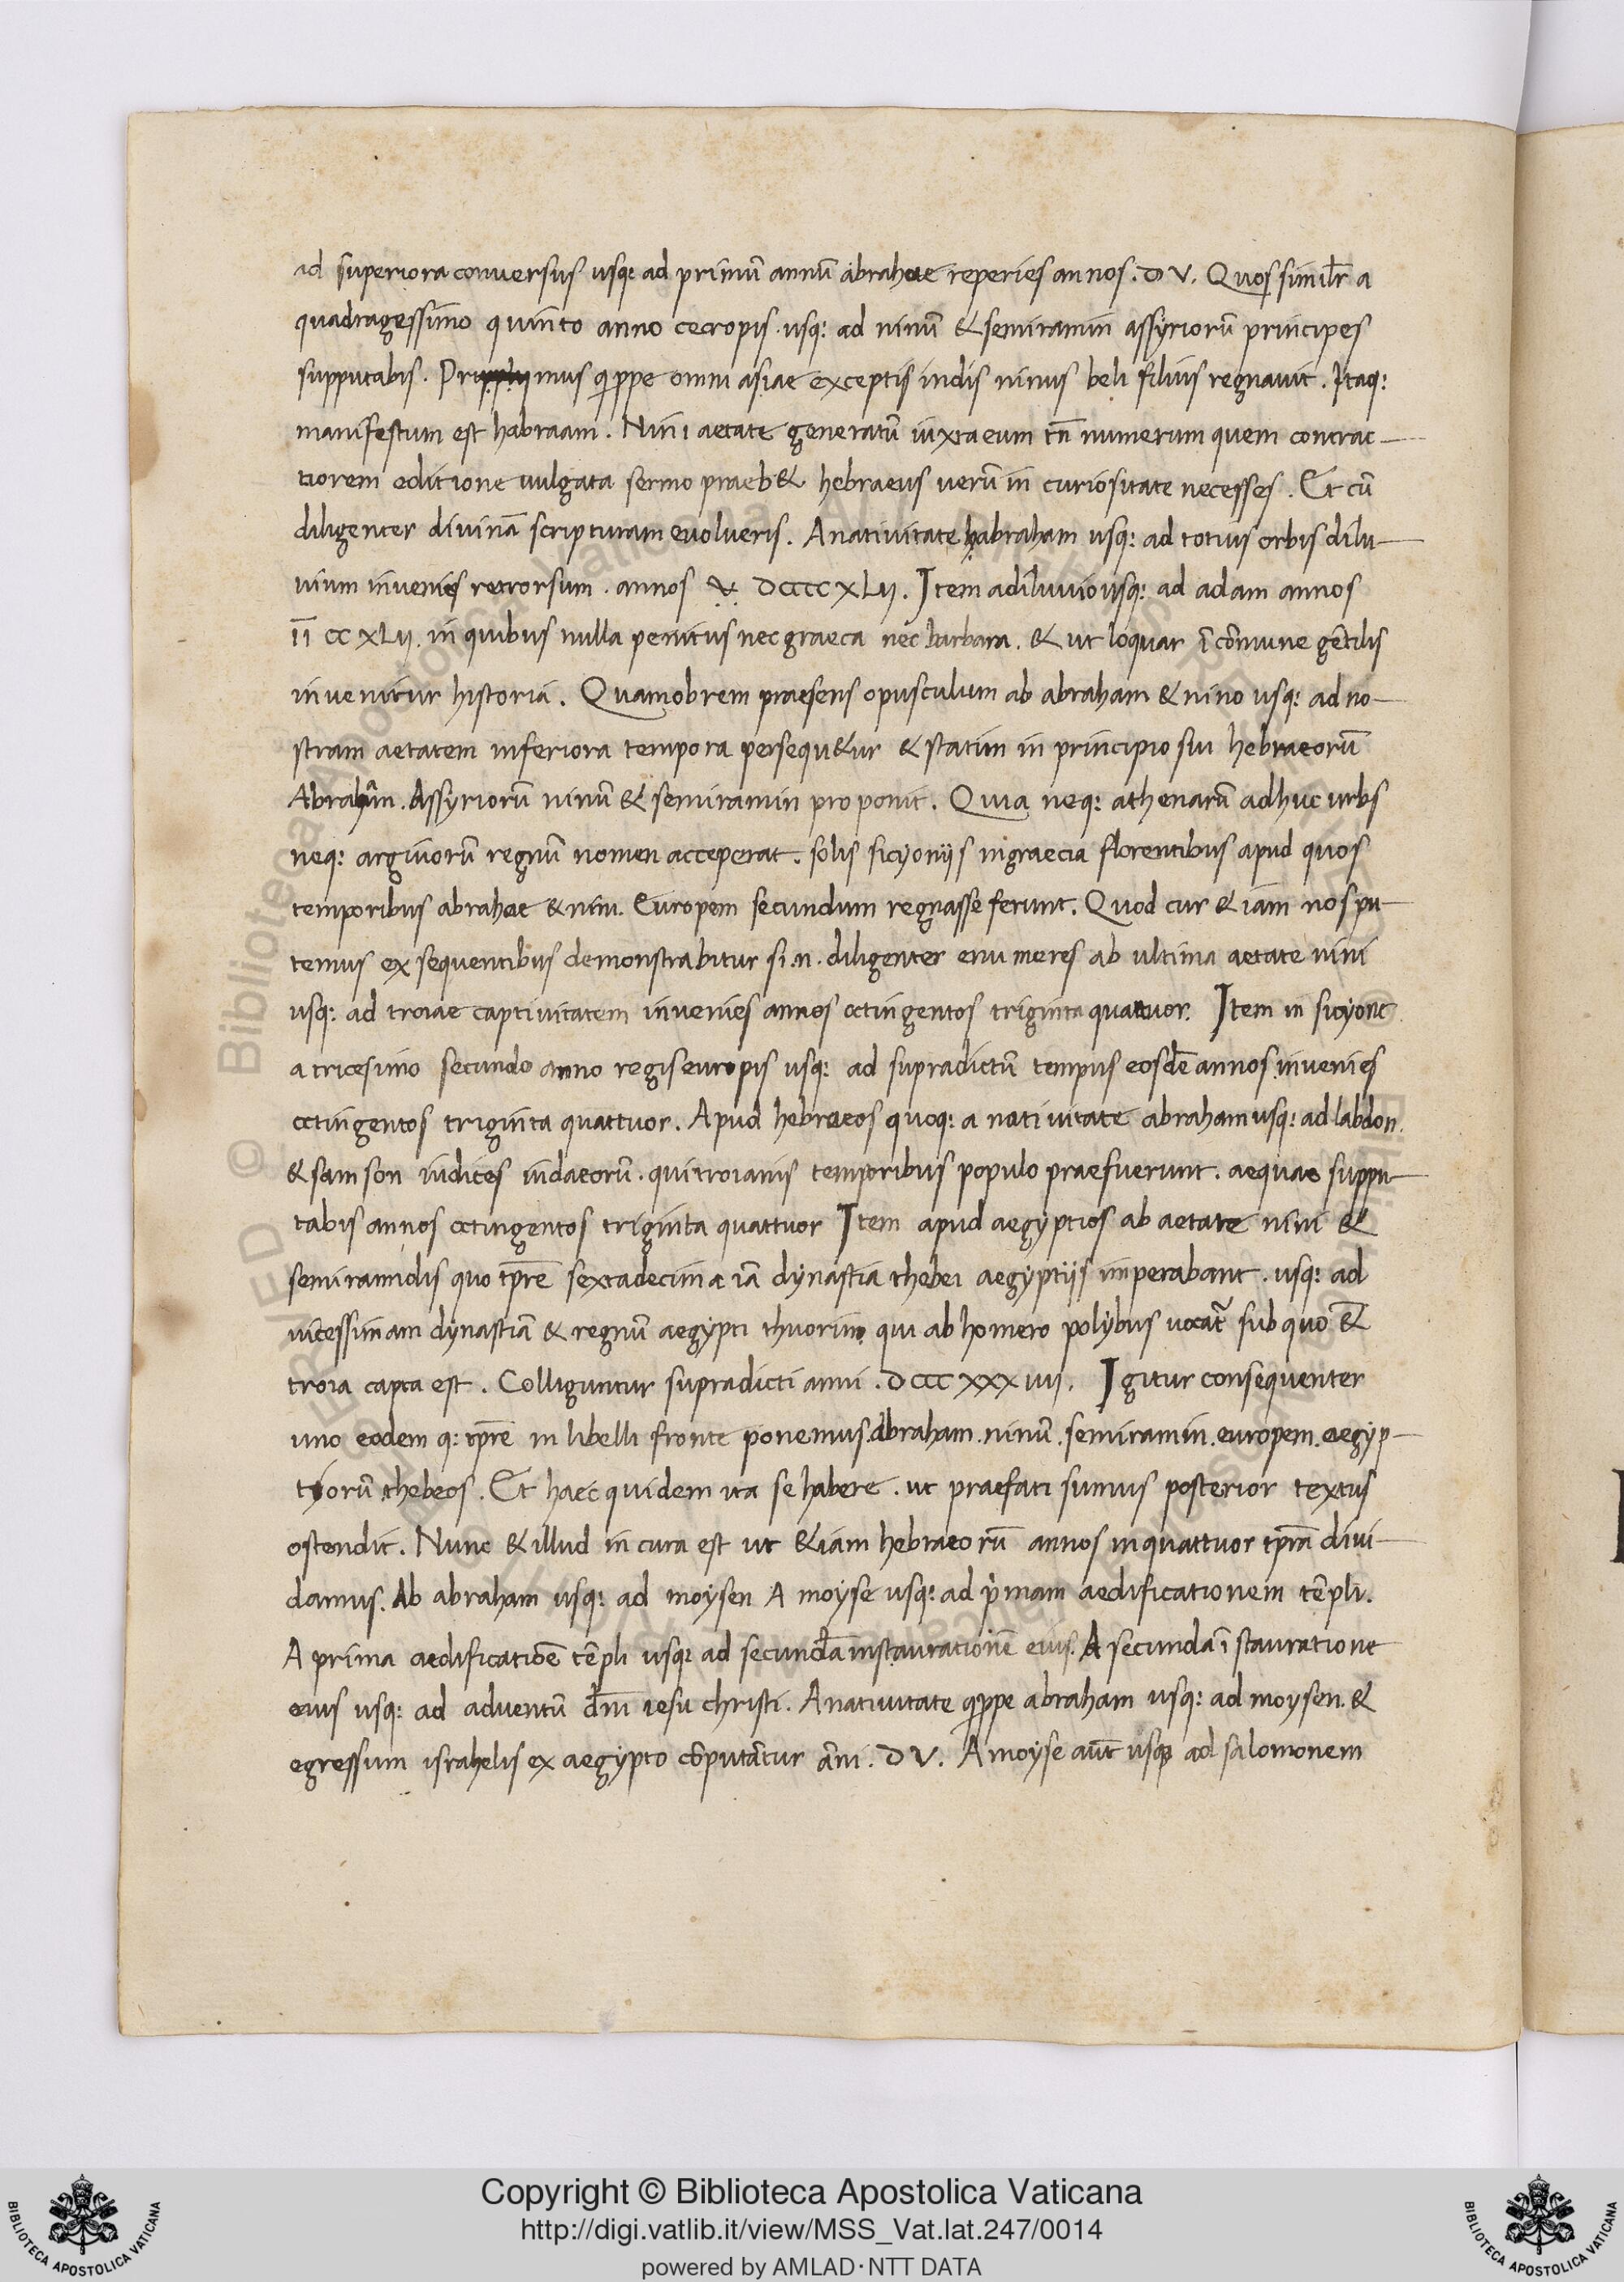 ad superiora conversus usq: ad primū annū abrahae reperies annos. D V. Quos simil̄r a
quadragessimo quinto anno cecropis. usq: ad ninū & semiramin assyriorū principes
supputabis. Primus q̄ppe omni asiae exceptis indis ninus beli filius regnavit. Itaq:
manifestum est habraam. Nini aetate generatū iuxta eum tñ numerum quem contrac-
tiorem editione vulgata sermo praeb& hebraeus verū in curiositate necesses. Et cū
diligenter divinā scripturam evolveris. A nativitate habraham usq: ad totius orbis dilu-
vium invenies retrorsum. annos DCCCCXLII. Item a diluvio usq: ad adam annos
II CCXLII. in quibus nulla penitus nec graeca nec barbara. & ut loquar ī cōmune gētilis
invenitur historia. Quamobrem praesens opusculum ab abraham & nino usq: ad no-
stram aetatem inferiora tempora persequ&ur & statim in principio sui hebraeorū
Abrahām. Assyriorū ninū & semiramin proponit. Quia neq: athenarū adhuc urbs
neq: argivorū regnū nomen acceperat. solis sicyoniis in graecia florentibus apud quos
temporibus abrahae & nini. Europem secundum regnasse ferunt. Quod cur & iam nos pu-
temus ex sequentibus demonstrabitur si .n. diligenter enumeres ab ultima aetate nini
usq: ad troiae captivitatem invenies annos octingentos triginta quattuor. Item in sicyone
a tricesimo secundo anno regis europis usq: ad supradictū tempus eosdē annos invenies
octingentos triginta quattuor. Apud hebraeos quoq: a nativitate abraham usq: ad labdon.
& samson iudices iudaeorū. qui troianis temporibus populo praefuerunt. aequae suppu-
tabis annos octingentos triginta quattuor Item apud aegyptios ab aetate nini &
semiramidis quo tp̄re sextadecima iā dynastia thebei aegyptiis imperabant. usq: ad
vicessimam dynastiā & regnū aegypti thuorim qui ab homero polybus vocat̄ sub quo &
troia capta est. Colliguntur supradicti anni. DCCCXXXIIII. Igitur consequenter
uno eodem q: tp̄re in libelli fronte ponemus. Abraham. ninū. semiramin. europem. aegyp-
tiorū thebeos. Et haec quidem ita se habere. ut praefati sumus posterior textus
ostendit. Nunc & illud in cura est ut &iam hebraeorū annos in quattuor tp̄ra divi-
damus. Ab abraham usq: ad moysen A moyse usq: ad p̄mam aedificationem tēpli.
A prima aedificatiōe tēpli usq: ad secundā instaurationē eius. A secunda īstauratione
eius usq: ad adventū dn̄i iesu christi. A nativitate q̄ppe abraham usq: ad moysen. &
egressum israhelis ex aegypto cōputātur āni. D V. A moyse aūt usq: ad salomonem
Copyright © Biblioteca Apostolica Vaticana
http://digi.vatlib.it/view/MSS_Vat.lat.247/0014
powered by AMLAD·NTT DATA
BIBLIOTECA APOSTOLICA VATICANA
BIBLIOTECA APOSTOLICA VATICANA